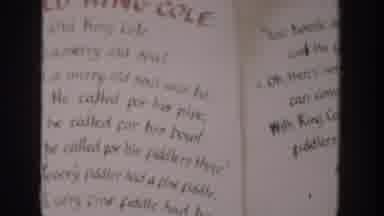 LD KING COLE
Old King Cole
a merry old soul
a merry old soul was he
He called for his pipe,
he called for his bowl
he called for his fiddlers three!
Every fiddler had a fine fiddle,
a very fine fiddle had he
and the
Oh there's
can com
With King Co
fiddlers